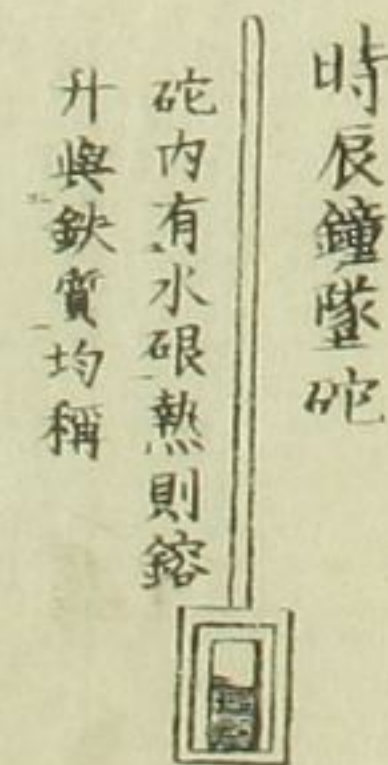 時辰鐘墜砣
砣内有水硍熱則鎔
升與鈌質均稱